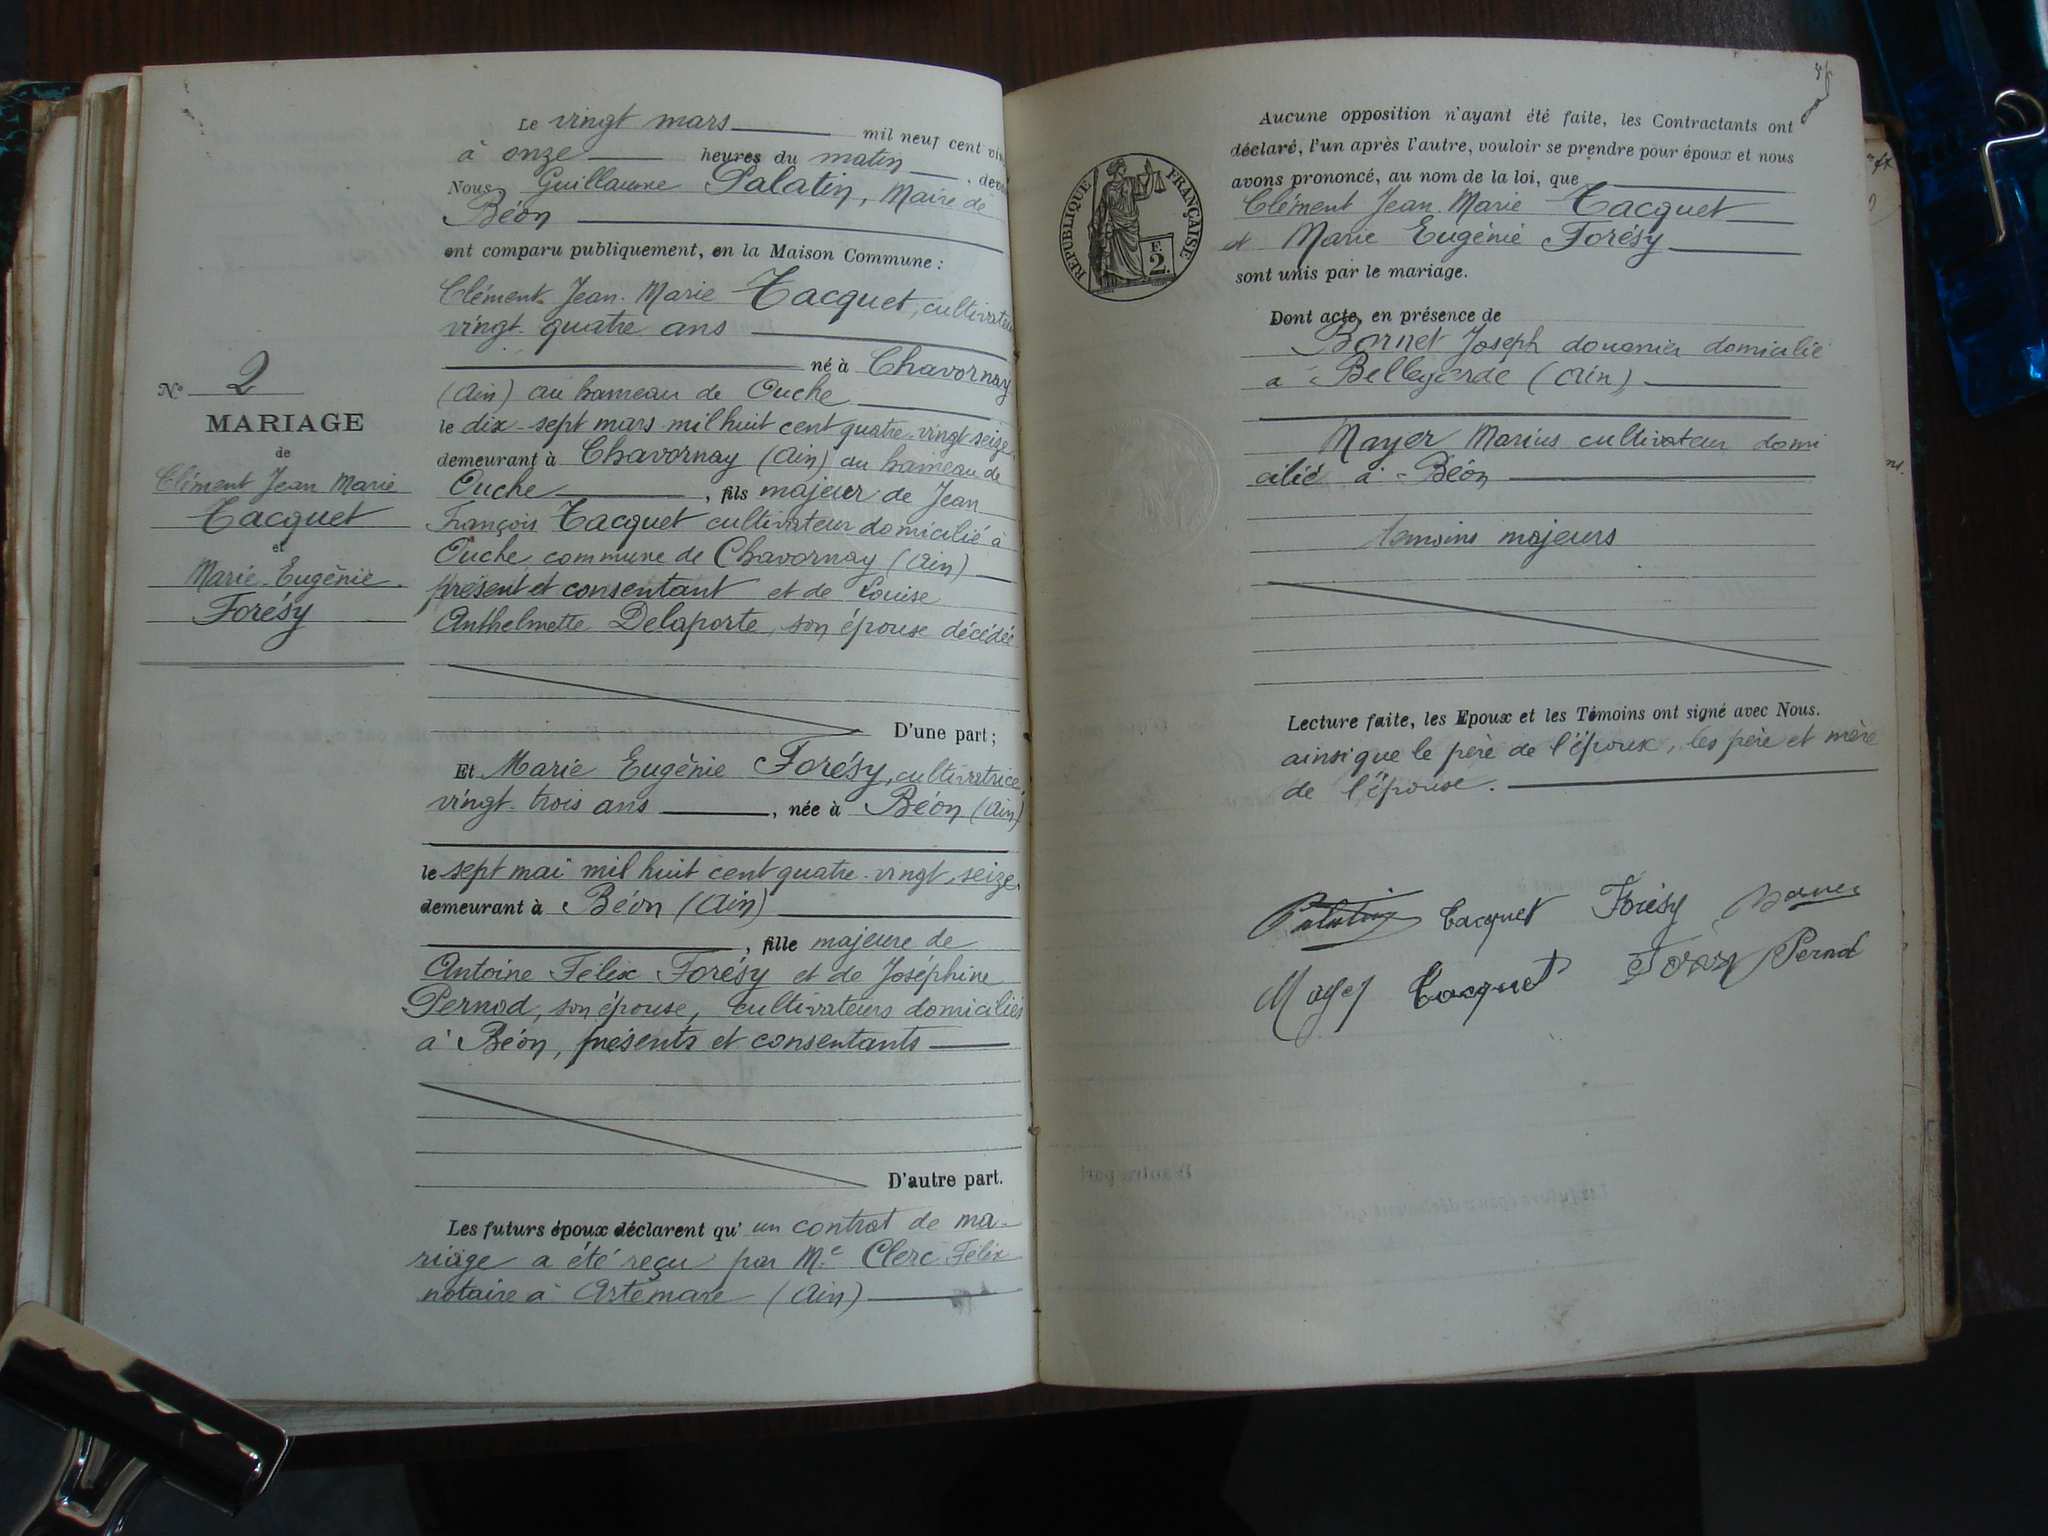 Le vingt mars mil neuf cent
à onze heures du matin,
Nous Guillaume Palatin, Maire de
Béon
ont comparu publiquement, en la Maison Commune :
Clément Jean Marie Tacquet, cultivateur
vingt-quatre ans
né à Chavornay
(Ain) au hameau de Ouche
le dix-sept mars mil huit cent quatre-vingt seize
demeurant à Chavornay (Ain) au hameau de
Ouche, fils majeur de Jean
François Tacquet cultivateur domicilié à
Ouche commune de Chavornay (Ain)
présent et consentant et de Louise
Anthelmette Delaporte, son épouse décédée
D'une part ;
N° 2
MARIAGE
de
Clément Jean Marie
Tacquet
et
Marie-Eugénie
Forésy
Et Marie Eugénie Forésy, cultivatrice,
vingt-trois ans, née à Béon (Ain)
le sept mai mil huit cent quatre-vingt-seize,
demeurant à Béon (Ain)
, fille majeure de
Antoine Félix Forésy et de Joséphine
Pernod, son épouse, cultivateurs domiciliés
à Béon, présents et consentants
D'autre part.
Les futurs époux déclarent qu'un contrat de ma-
riage a été reçu par Me Clerc Félix
notaire à Artemare (Ain)
RÉPUBLIQUE FRANÇAISE
F.
2.
Aucune opposition n'ayant été faite, les Contractants ont
déclaré, l'un après l'autre, vouloir se prendre pour époux et nous
avons prononcé, au nom de la loi, que
Clément Jean Marie Tacquet
et Marie Eugénie Forésy
sont unis par le mariage.
Dont acte, en présence de
Bornet Joseph douanier domicilié
à Bellegarde (Ain)
Mayer Marius cultivateur domi
cilié à Béon
témoins majeurs
Lecture faite, les Epoux et les Témoins ont signé avec Nous.
ainsi que le père de l'époux, les père et mère
de l'épouse.
Palatin Tacquet Forésy
Mayer Tacquet Forésy Pernod